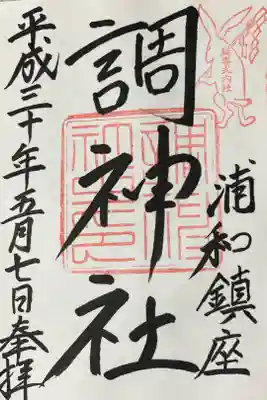 浦和鎮座
調神社
平成三十年五月七日奉拝